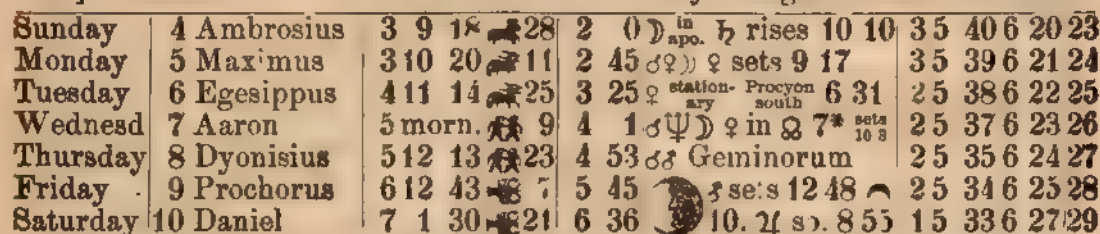 Sunday 4 Ambrosius 3 9 18 28 2 0 ☽ in apo. ♄ rises 10 10 3 5 40 6 20 23
Monday 5 Maximus 3 10 20 11 2 45 ☌♀☽ ♀ sets 9 17 3 5 39 6 21 24
Tuesday 6 Egesippus 4 11 14 25 3 25 ♀ stationary Procyon south 6 31 2 5 38 6 22 25
Wednesd 7 Aaron 5 morn. 9 4 1 ☌♆☽ ♀ in ☊ 7* sets 10 3 2 5 37 6 23 26
Thursday 8 Dyonisius 5 12 13 23 4 53 ☌♂ Geminorum 2 5 35 6 24 27
Friday 9 Prochorus 6 12 43 7 5 45 ♂ sets 12 48 2 5 34 6 25 28
Saturday 10 Daniel 7 1 30 21 6 36 10. ♃ so. 8 55 1 5 33 6 27 29